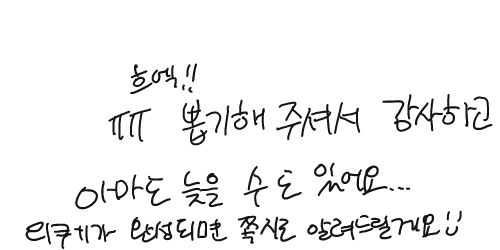 흐엑!!
ㅠㅠ 뽑기해 주셔서 감사하고
아마도 늦을 수도 있어요...
리퀘가 완성되면 쪽지로 알려드릴게요!!